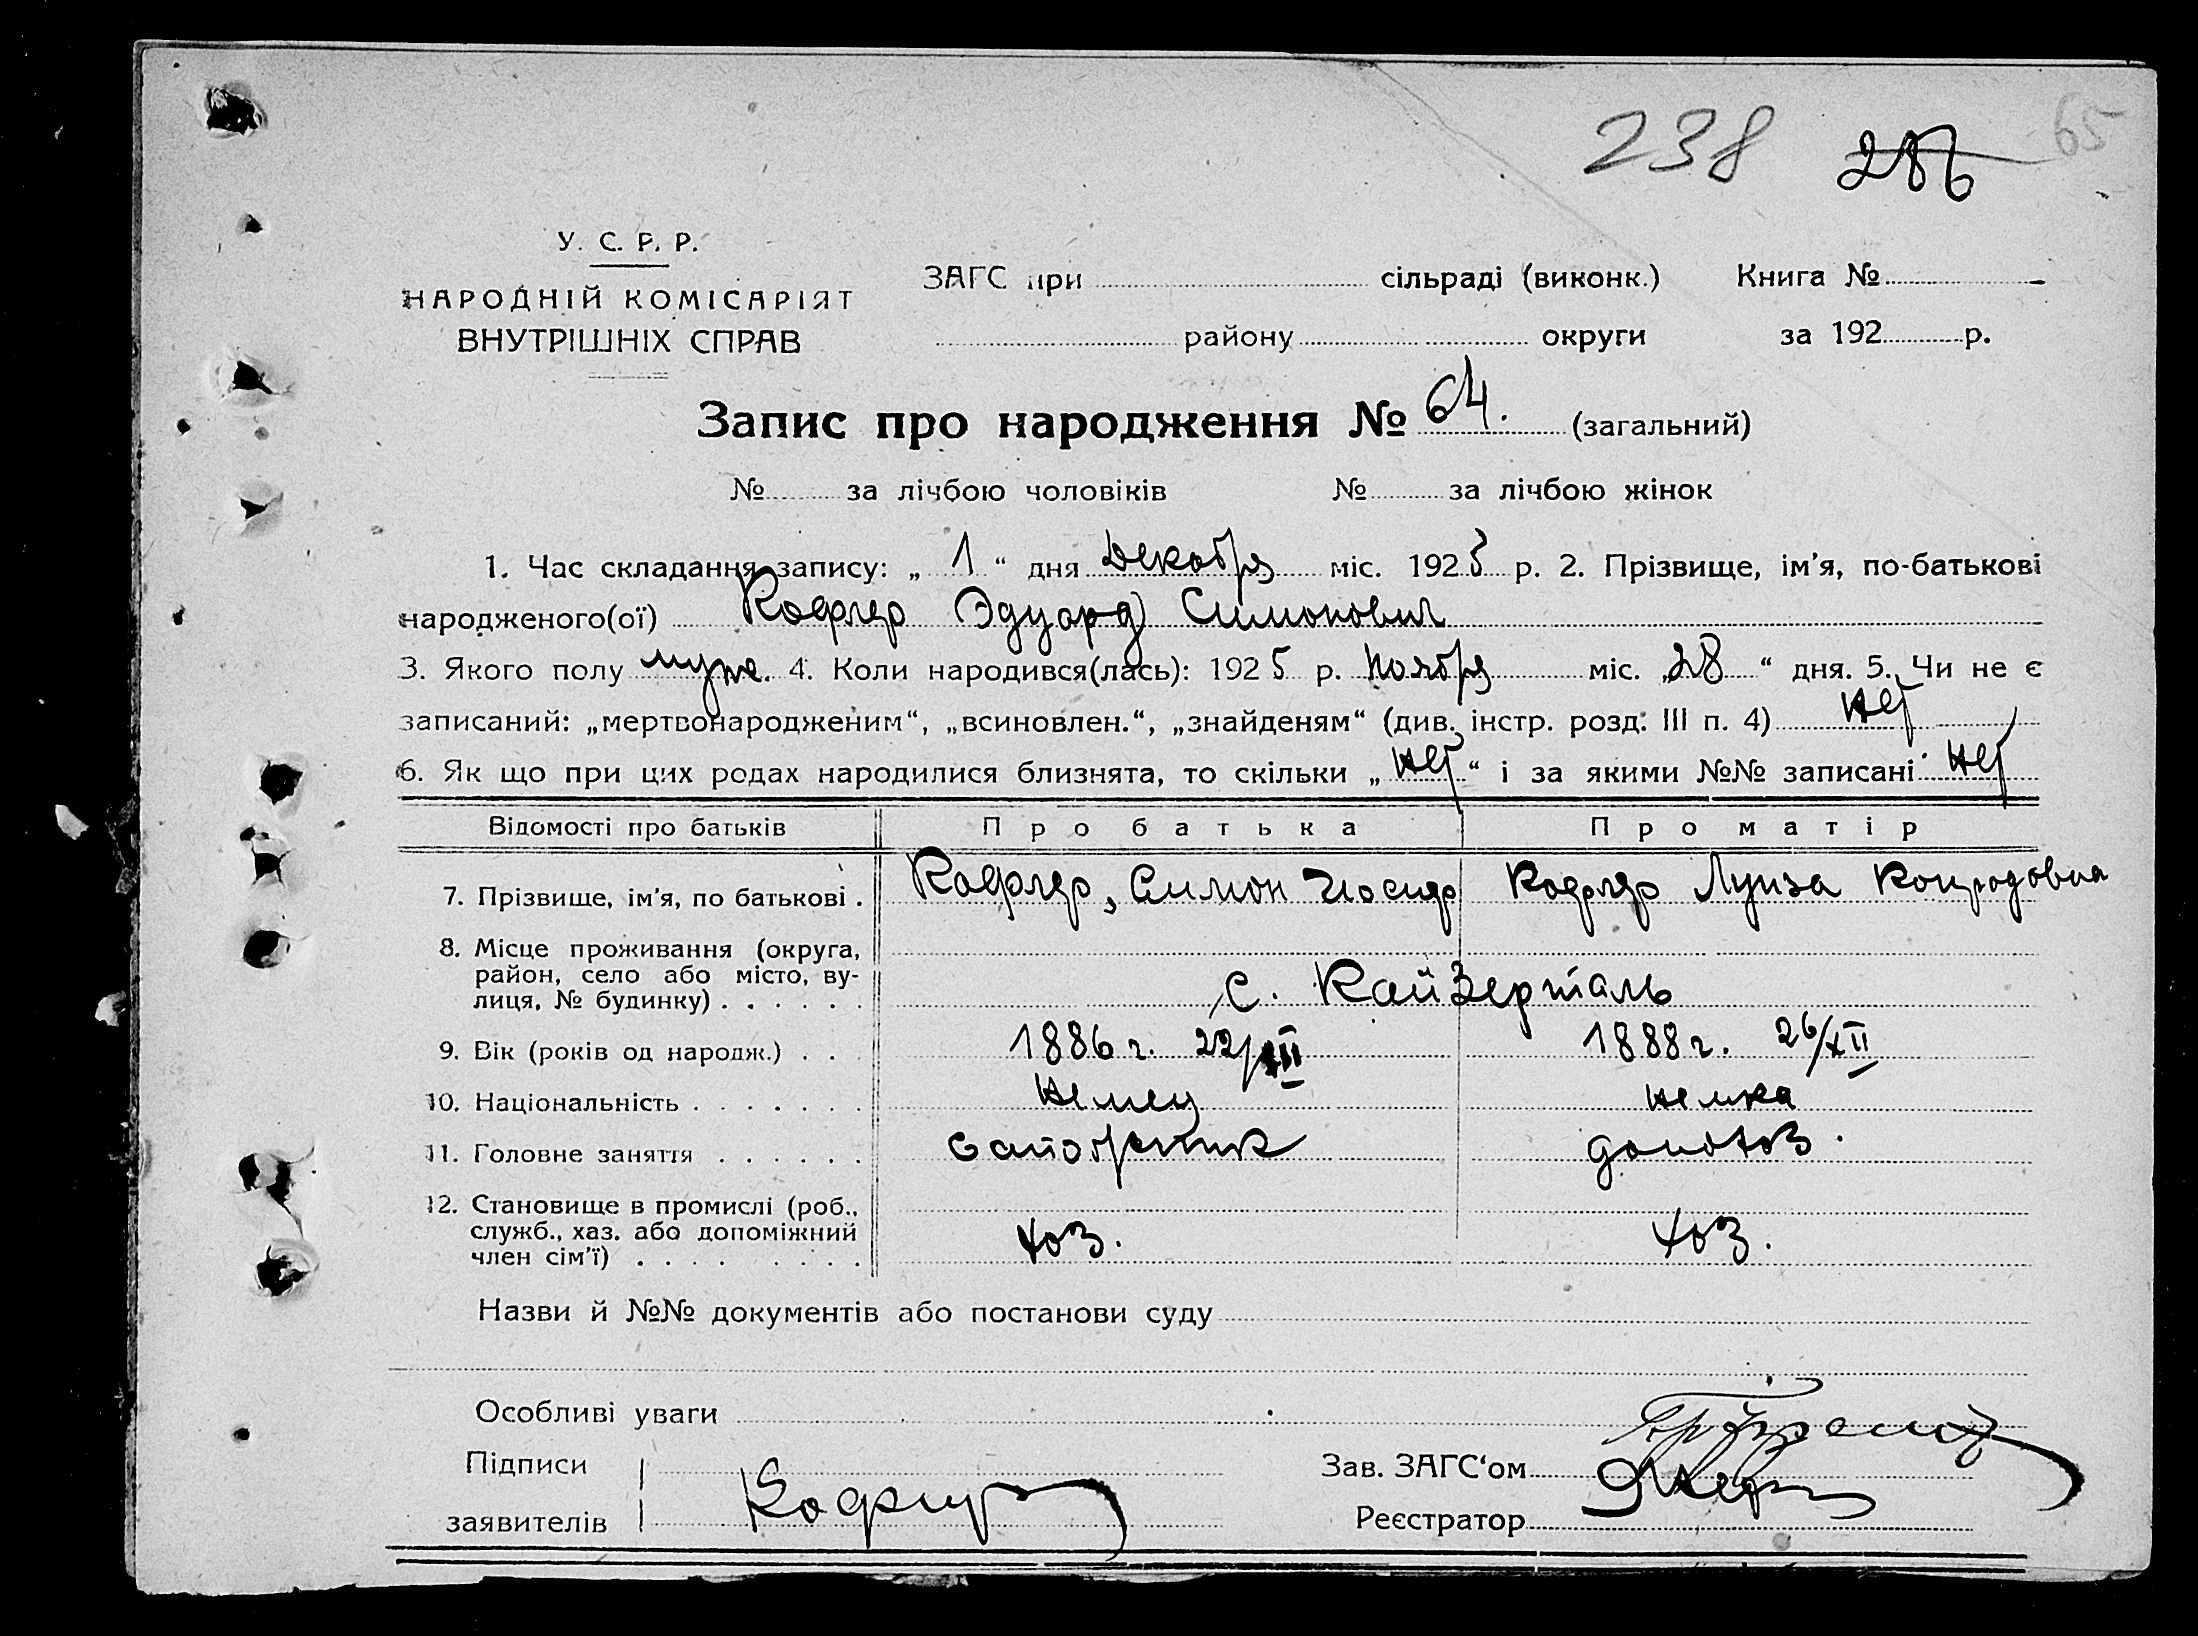 238 286 65
У. С. Р. Р.
НАРОДНІЙ КОМІСАРІЯТ
ВНУТРІШНІХ СПРАВ
ЗАГС при сільраді (виконк.) Книга №
району округи за 192 р.
Запис про народження № 64. (загальний)
№ за лічбою чоловіків № за лічбою жінок
1. Час складання запису: „ 1 “ дня Декабря міс. 1925 р. 2. Прізвище, ім'я, по-батькові
народженого(ої) Кофлер Эдуард Симонович
3. Якого полу муж. 4. Коли народився(лась): 1925 р. Ноября міс. „28“ дня. 5. Чи не є
записаний: „мертвонародженим“, „всиновлен.“, „знайденям“ (див. інстр. розд. III п. 4) нет
6. Як що при цих родах народилися близнята, то скільки „ нет “ і за якими №№ записані нет
Відомості про батьків Про батька Про матір
7. Прізвище, ім'я, по батькові . Кофлер, Симон Иосиф Кофлер Луиза Конрадовна
8. Місце проживання (округа,
район, село або місто, ву-
лиця, № будинку) . . . . . . с. Кайзерталь
9. Вік (років од народж.) . . . 1886 г. 22/XII 1888 г. 26/XII
10. Національність . . . . . . . Немец немка
11. Головне заняття . . . . . . домохоз.
12. Становище в промислі (роб.,
служб., хаз. або допоміжний
член сім'ї) . . . . . . . . хоз. хоз.
Назви й №№ документів або постанови суду
Особливі уваги
Підписи Зав. ЗАГС'ом
заявителів Кофлер Реєстратор